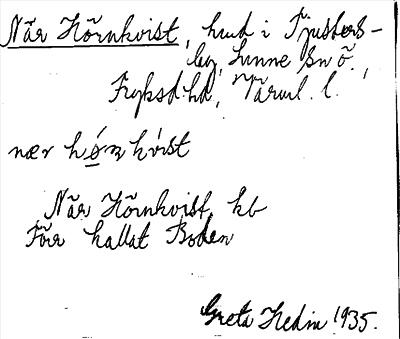 När Hörnkvist, hmd i Tjusters-
by, Sunne sn ö.,
Fryksd. hd, Värml. l.
nær hó̱rnkvist
När Hörnkvist kb
Förr kallat Boden
Greta Hedin 1935.